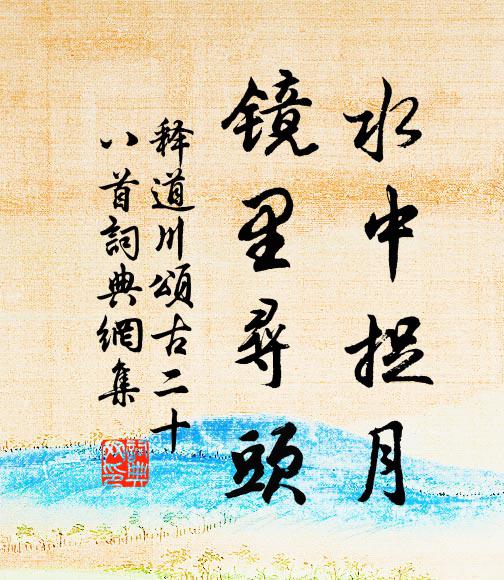 水中捉月
镜里尋頭
释道川頌古二十
八首詞典網集